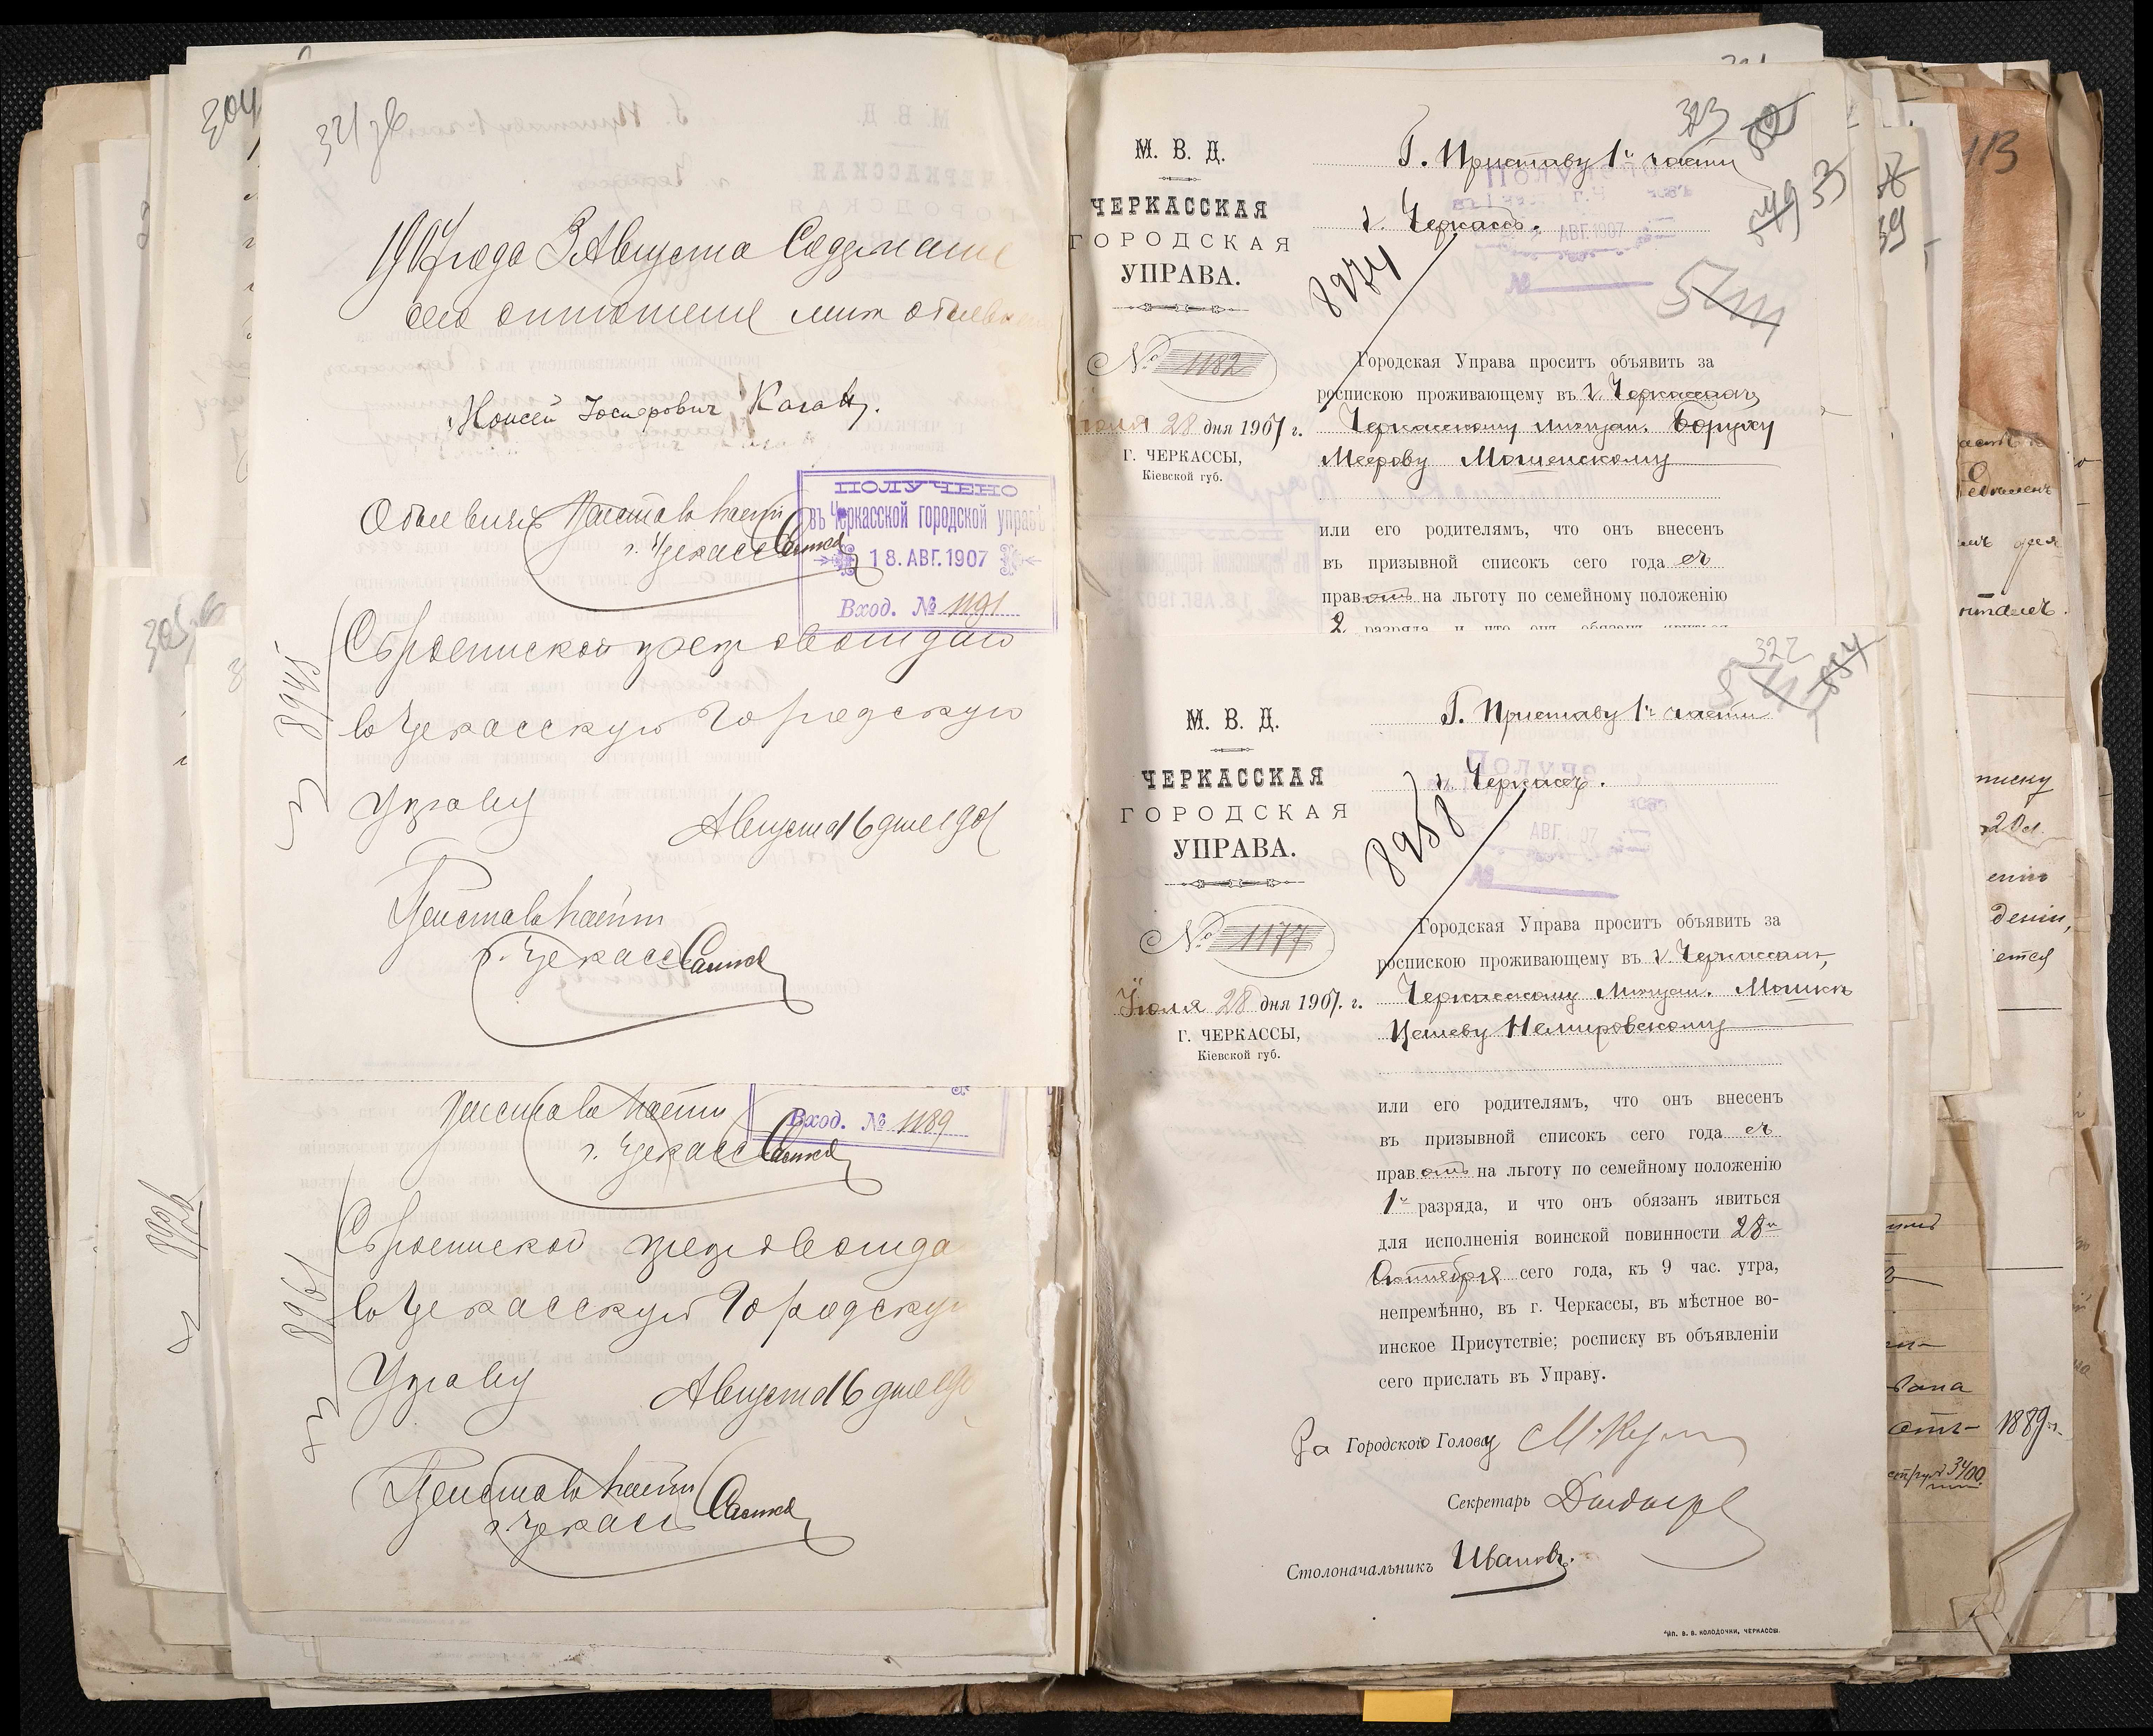 321 об
1907 года 3 Августа Содержание
сего отношения мне объявлено
Моисей Іосифовичъ Каганъ.
Объявилъ Приставъ 1 части
г. Черкассъ
ПОЛУЧЕНО
въ Черкасской городской управѣ
18. АВГ. 1907
Вход. № 1191
8945
Съ роспиской препровождаю
въ Черкасскую Городскую
Управу
Августа 16 дня 1907
Приставъ 1 части
г. Черкассъ
Приставъ 1 части
г. Черкассъ
Вход. № 1189
8961
Съ роспиской препровожда
въ Черкасскую Городскую
Управу
Августа 16 дня 190
Приставъ 1 части
г. Черкассъ
304
305
8926
323
М. В. Д.
ЧЕРКАССКАЯ
ГОРОДСКАЯ
УПРАВА.
№ 1182
Іюля 28 дня 1907 г.
Г. ЧЕРКАССЫ,
Кіевской губ.
Г. Приставу 1й части
г. Черкассъ.
ПОЛУЧЕНО
АВГ. 1907
№
8974
549
511
Городская Управа проситъ объявить за
роспискою проживающему въ г. Черкассахъ,
Черкасскому мѣщан. Боруху
Меерову Мошенскому
или его родителямъ, что онъ внесенъ
въ призывной списокъ сего года съ
правомъ на льготу по семейному положенію
2 разряда, и что онъ обязанъ явиться
322
554
М. В. Д.
ЧЕРКАССКАЯ
ГОРОДСКАЯ
УПРАВА.
№ 1177
Іюля 28 дня 1907. г.
Г. ЧЕРКАССЫ,
Кіевской губ.
Г. Приставу 1й части
г. Черкассъ.
АВГ. 07
№
8958
Городская Управа проситъ объявить за
роспискою проживающему въ г. Черкассахъ,
Черкасскому мѣщан. Мошкѣ
Цешеву Немировскому
или его родителямъ, что онъ внесенъ
въ призывной списокъ сего года съ
правомъ на льготу по семейному положенію
1й разряда, и что онъ обязанъ явиться
для исполненія воинской повинности 28го
Октября сего года, къ 9 час. утра,
непремѣнно, въ г. Черкассы, въ мѣстное во-
инское Присутствіе; росписку въ объявленіи
сего прислать въ Управу.
За Городского Голову
Секретарь
Столоначальникъ Ивановъ.
ТИП. В. В. КОЛОДОЧКИ, ЧЕРКАССЫ.
113
39
1889 г.
3400